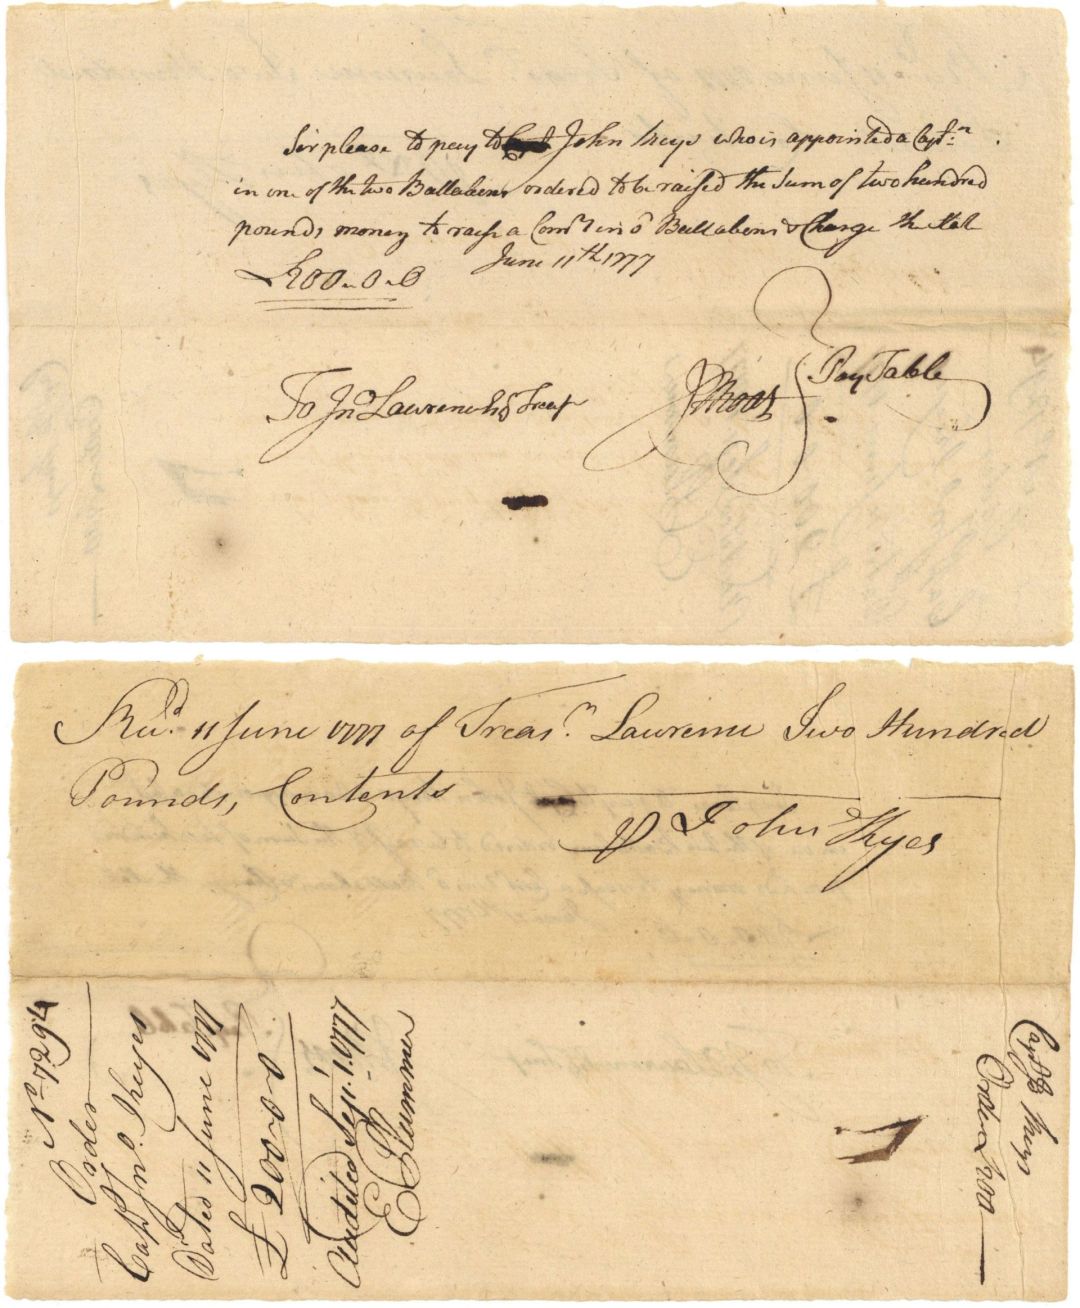 Sir please to pay to John Skeys who is appointed a Capt.n
in one of the two Battalions ordered to be raised the Sum of two hundred
pounds money to raise a Com.y in s.d Battalions & Charge the State
June 11th 1777
£200-0-0
To Jn.o Lawrence Esq Treasr
Pay Table
Rec.d 11 June 1777 of Treas.r Lawrence Two Hundred
Pounds, Contents
John Skyes
No 7294
Order
Capt. Jn.o Skeyes
Dated 11 June 1777
£ 200-0-0
Audited Sep.r 1. 1777
E Plummer
Capt
Order £200